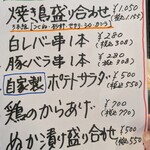 焼鳥盛り合わせ ¥1,050
(税込1,155)
白レバ串1本 ¥280
(税込308)
豚バラ串1本 ¥280
(税込308)
自家製 ポテトサラダ ¥500
(税込550)
鶏のからあげ ¥700
(税込770)
ぬか漬け盛り合せ ¥500
(税込550)